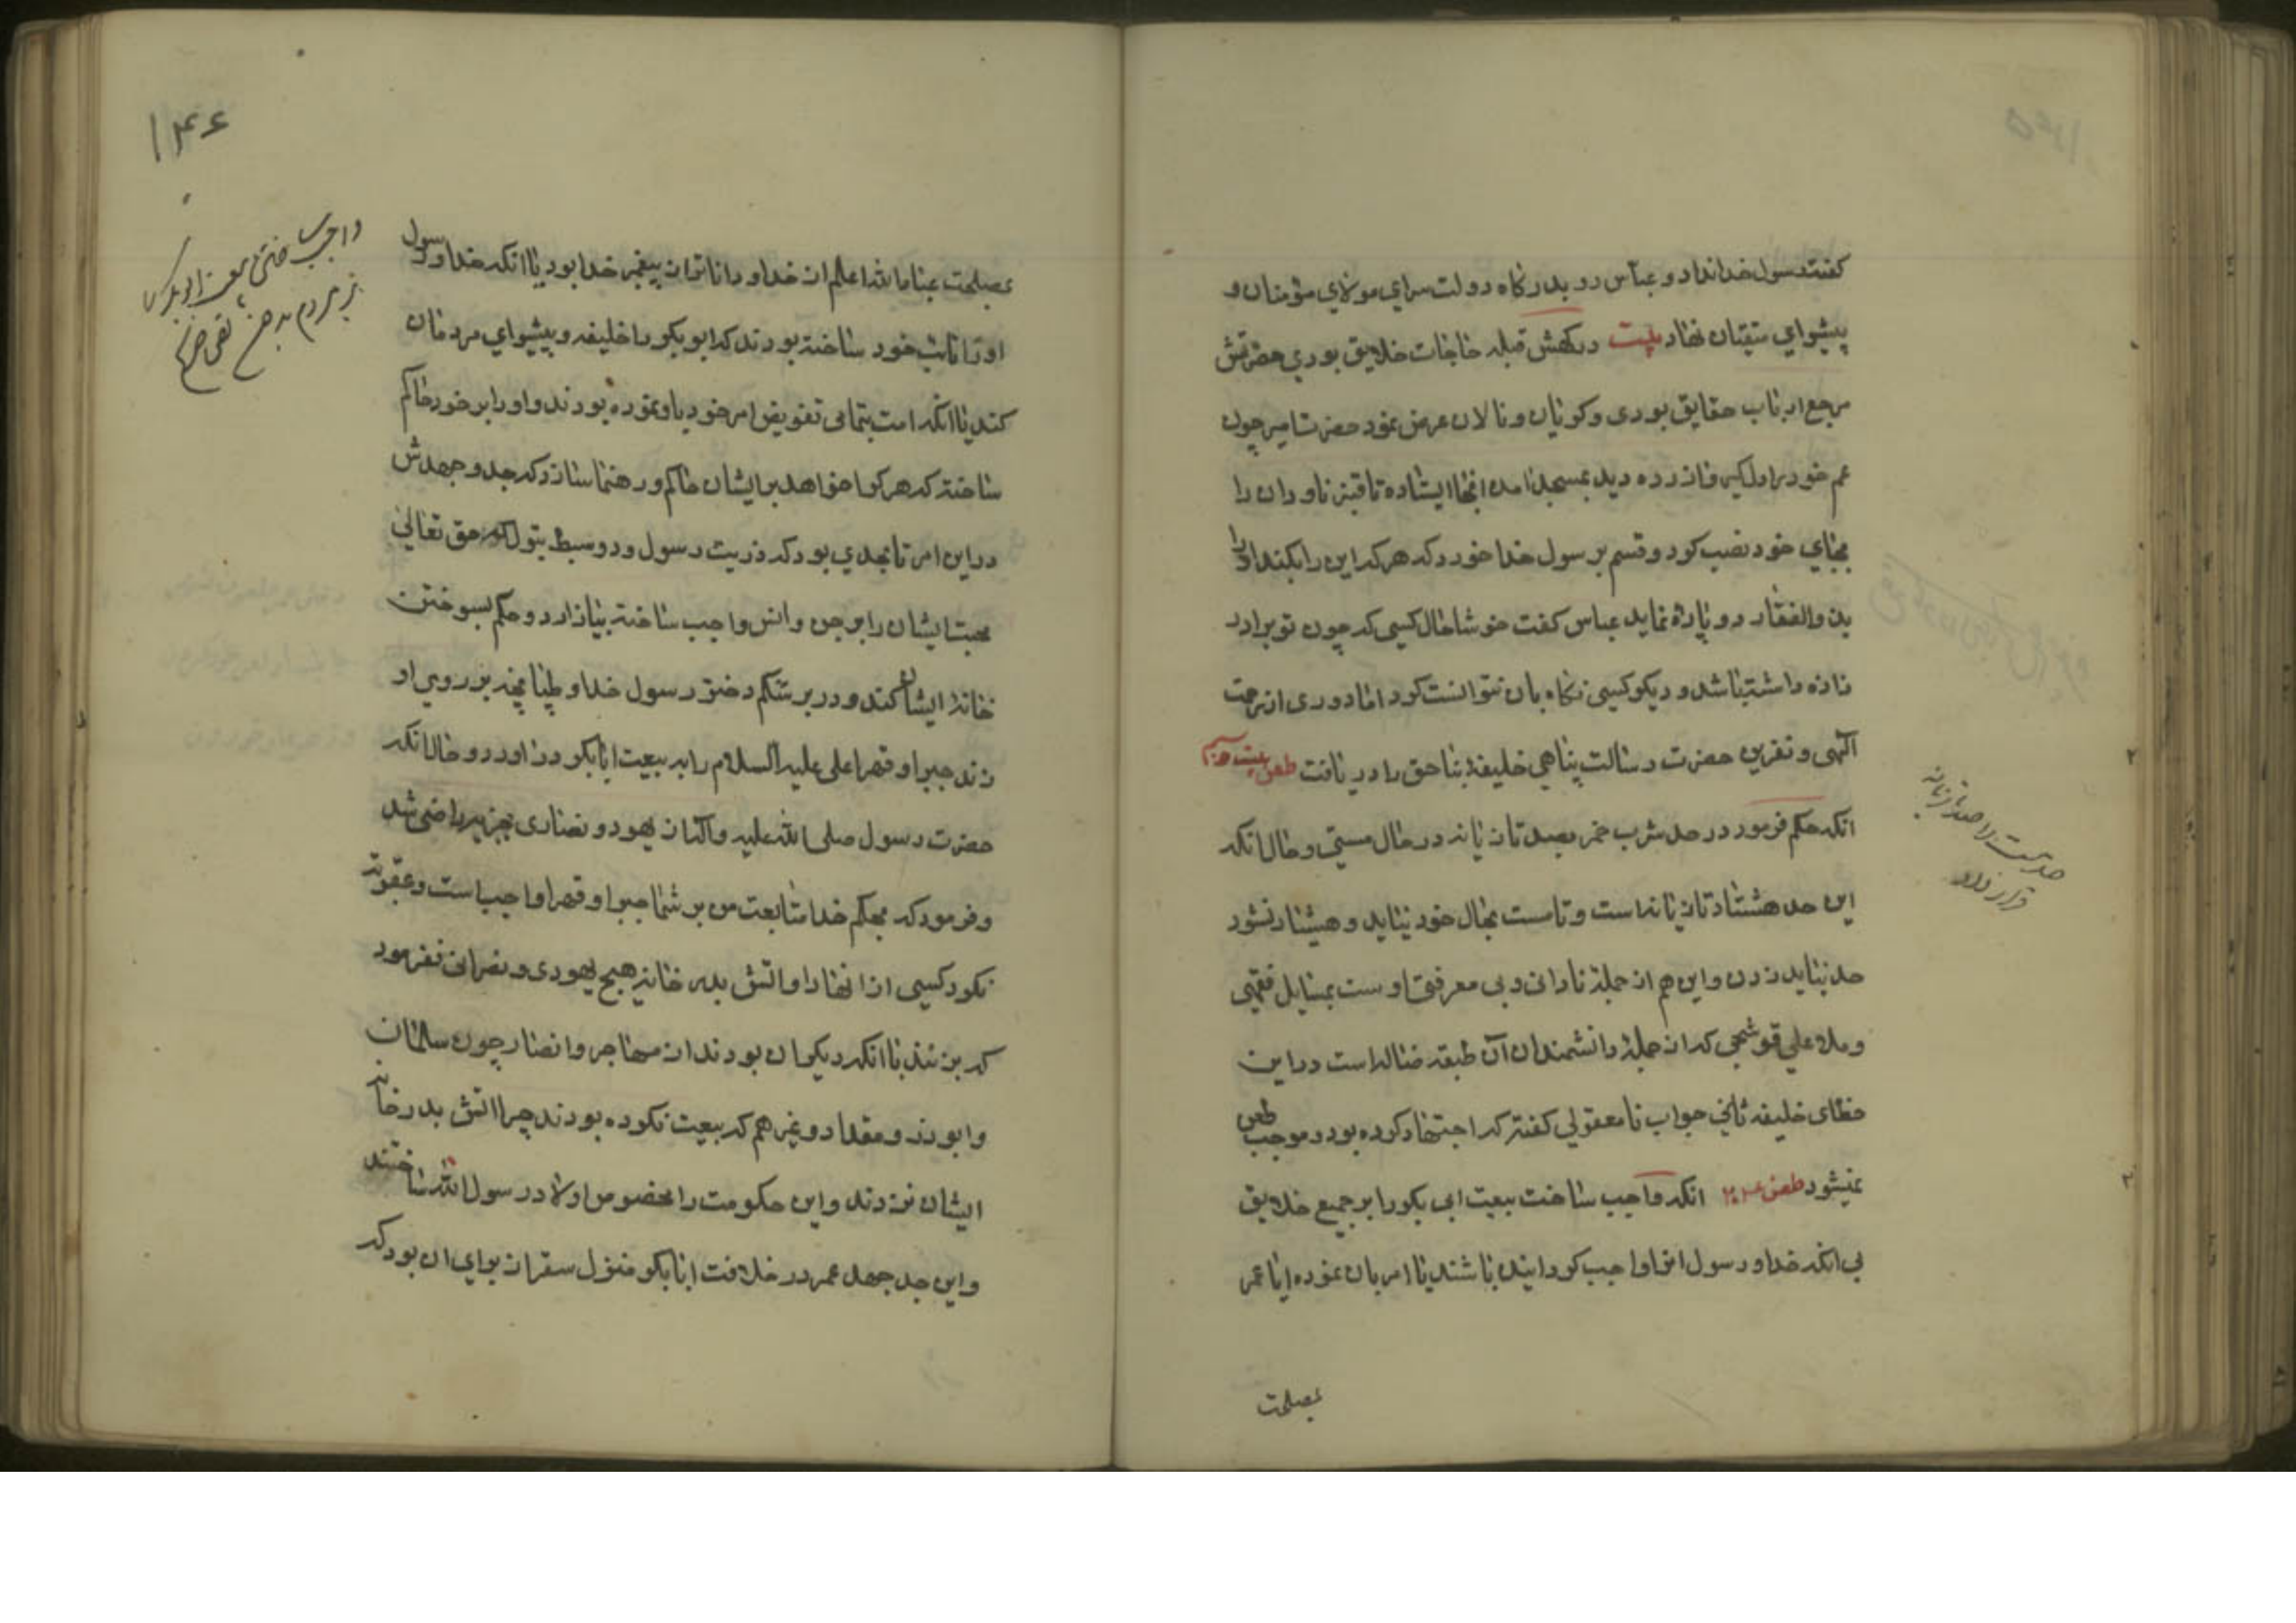 گفتهٔ رسول خدا نداد و عباس رو بدرگاه دولت سرای مولای مؤمنان و
پیشوای متقیان نهاد بیت درگهش قبله حاجات خلایق بودی حضرتش
مرجع ارباب حقایق بودی و گریان و نالان عرض نمود حضرت امیر چون
عم خود را دلگیر و ازرده دید بمسجد امد انجا ایستاده تا قنبر ناودان را
بجای خود نصب کرد و قسم بر رسول خدا خورد که هر که این را بکند او را
بذوالفقار دو پاره نماید عباس گفت خوشا حال کسی که چون تو برادر
زاده داشته باشد و دیگر کسی نگاه بان نتوانست کرد اما دوری از رحمت
الهی و نفرین حضرت رسالت پناهی خلیفهٔ بناحق را دریافت طعن بیست و
انکه حکم فرمود در حد شرب خمر بصد تازیانه در حال مستی و حال انکه
این حد هشتاد تازیانه است و تا مست بحال خود نیاید و هشیار نشود
حد نباید زدن و این هم از جملهٔ نادانی و بی معرفتی اوست بمسایل فقهی
و ملا علی قوشجی که از جملهٔ دانشمندان آن طبقه ضاله است در این
خطای خلیفه ثانی جواب نامعقولی گفته که اجتهاد کرده بود و موجب طعن
نمیشود طعن انکه واجب ساخت بیعت ابی بکر را بر جمیع خلایق
بی انکه خدا و رسول انرا واجب گردانیده باشند یا امر بان نموده ایا عمر
بمصلحت
حد مست را صد تازیانه
قرار داد
۱۴۶
بمصلحت عباد الله اعلم از خدا و داناتر از پیغمبر خدا بود یا انکه خدا و رسول
او را نایب خود ساخته بودند که ابو بکر را خلیفه و پیشوای مردمان
کند یا انکه امت بتمامی تفویض امر خود باو نموده بودند و او را بر خود حاکم
ساخته که هر کرا خواهد بر ایشان حاکم و رهنما سازد که جد و جهدش
در این امر تا بحدی بود که ذریت رسول و دو سبط بتول که حق تعالی
محبت ایشان را بر جن و انس واجب ساخته بیازارد و حکم بسوختن
خانهٔ ایشان کند و در بر شکم دختر رسول خدا و طپانچه بر روی او
زند جبرا و قهرا علی علیه السلام را به بیعت ابابکر دراورد و حال انکه
حضرت رسول صلی الله علیه و آله از یهود و نصاری بجزیه راضی شد
و فرمود که بحکم خدا متابعت من بر شما جبرا و قهرا واجب است و عقوبت
نکرد کسی از انها را و اتش بدر خانهٔ هیچ یهودی و نصرانی نفرمود
که بزنند با انکه دیگران بودند از مهاجر و انصار چون سلمان
و ابوذر و مقداد و غیر هم که بیعت نکرده بودند چرا اتش بدر خانه
ایشان نزدند و این حکومت را مخصوص اولاد رسول الله ساختند
و این جد جهد عمر در خلافت ابابکر منزل سقر از برای ان بود که
واجب ساختن بیعت ابوبکر
بر مردم